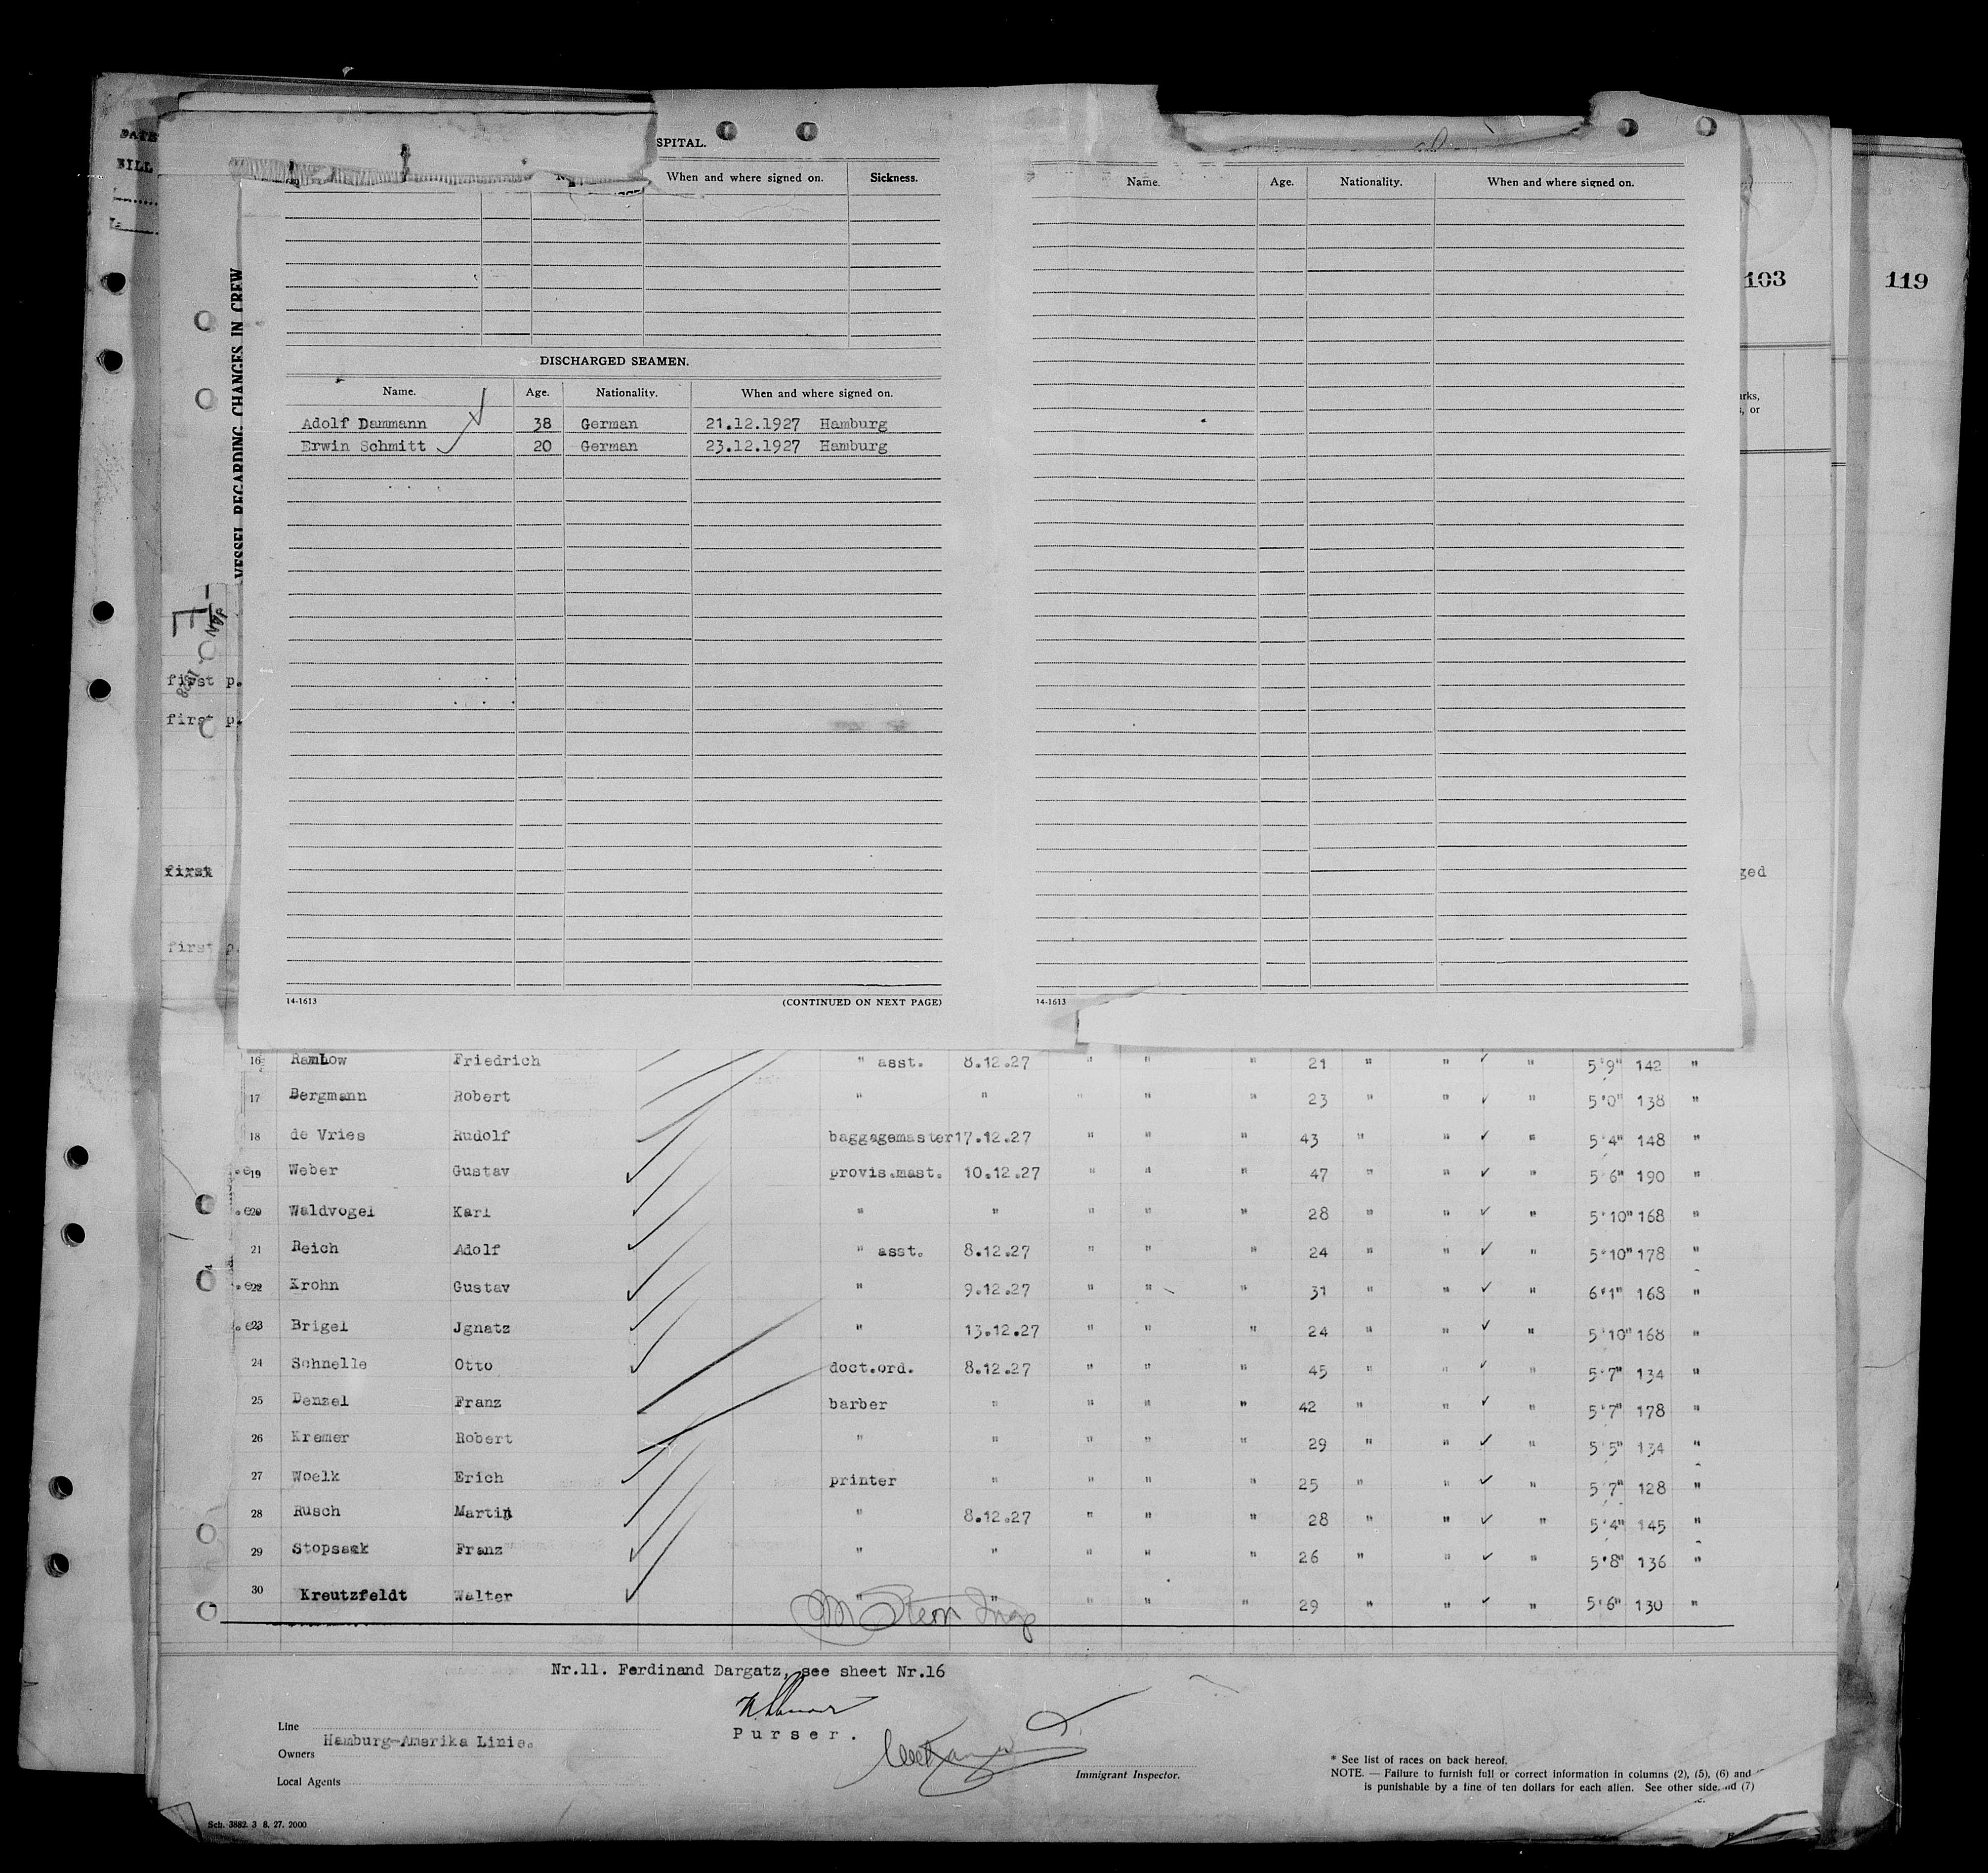 DATE
FILL
SPITAL.
When and where signed on. Sickness.
Name. Age. Nationality. When and where signed on.
VESSEL REGARDING CHANGES IN CREW
103
119
DISCHARGED SEAMEN.
Name. Age. Nationality. When and where signed on.
Adolf Dammann 38 German 21.12.1927 Hamburg
Erwin Schmitt 20 German 23.12.1927 Hamburg
first p.
first p.
first
first p.
ged
14-1613 (CONTINUED ON NEXT PAGE)
14-1613
16 Ramlow Friedrich " asst. 8.12.27 " " " 21 " " " 5'9" 142 "
17 Bergmann Robert " " " " " 23 " " " 5'0" 138 "
18 de Vries Rudolf baggagemaster 17.12.27 " " " 43 " " " 5'4" 148 "
19 Weber Gustav provis.mast. 10.12.27 " " " 47 " " " 5'6" 190 "
20 Waldvogel Karl " " " " " 28 " " " 5'10" 168 "
21 Reich Adolf " asst. 8.12.27 " " " 24 " " " 5'10" 178 "
22 Krohn Gustav " 9.12.27 " " " 31 " " " 6'1" 168 "
23 Brigel Jgnatz " 13.12.27 " " " 24 " " " 5'10" 168 "
24 Schnelle Otto doct.ord. 8.12.27 " " " 45 " " " 5'7" 134 "
25 Denzel Franz barber " " " " 42 " " " 5'7" 178 "
26 Kremer Robert " " " " " 29 " " " 5'5" 134 "
27 Woelk Erich printer " " " " 25 " " " 5'7" 128 "
28 Rusch Martin " 8.12.27 " " " 28 " " " 5'4" 145 "
29 Stopsack Franz " " " " " 26 " " " 5'8" 136 "
30 Kreutzfeldt Walter " " " " " 29 " " " 5'6" 130 "
Nr.11. Ferdinand Dargatz, see sheet Nr.16
Purser.
Line
Hamburg-Amerika Linie.
Owners
Local Agents
Immigrant Inspector.
* See list of races on back hereof.
NOTE. — Failure to furnish full or correct information in columns (2), (5), (6) and
is punishable by a fine of ten dollars for each alien. See other side. (7)
Sch. 3882. 3 8. 27. 2000